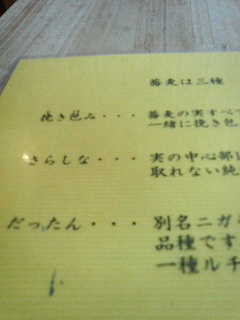 蕎麦は三種
挽き包み・・・ 蕎麦の実すべて
一緒に挽き包
さらしな・・・ 実の中心部
取れない純
だったん・・・ 別名ニガ
品種です
一種ルチ